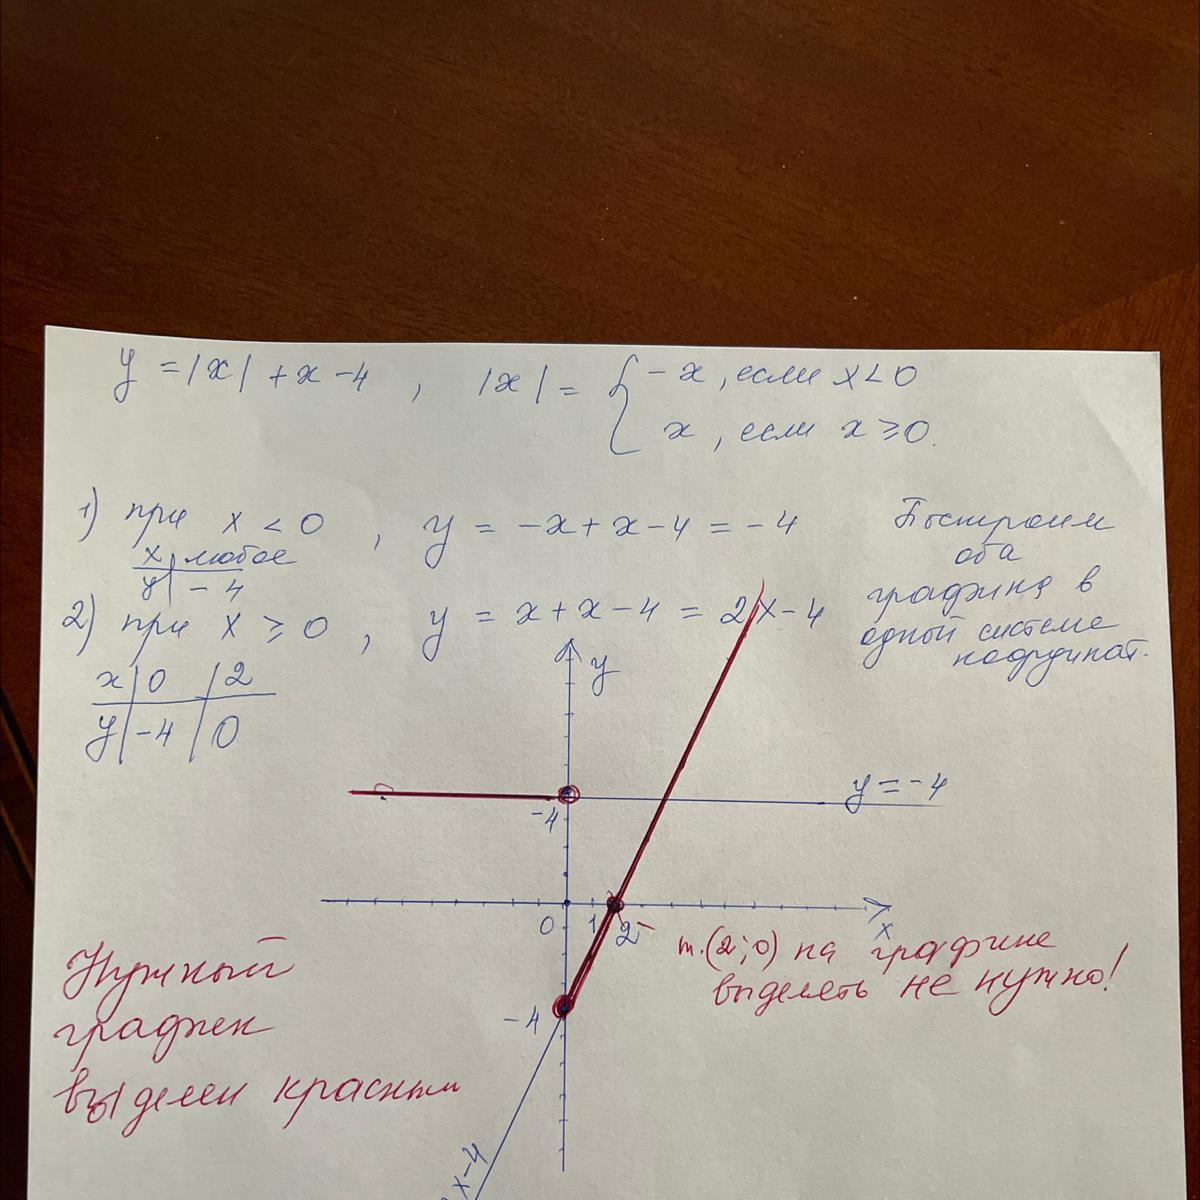 y = |x| + x - 4 , |x| = { - x , если x < 0
x , если x ≥ 0.
1) при x < 0 , y = - x + x - 4 = - 4
x | любое
y | - 4
2) при x ≥ 0 , y = x + x - 4 = 2x - 4
x | 0 | 2
y | -4 | 0
Построим
оба
графика в
одной системе
координат.
y
y = - 4
-4
0 1 2 x
-4
x-4
т.(2;0) на графике
выделять не нужно!
Нужный
график
выделен красным